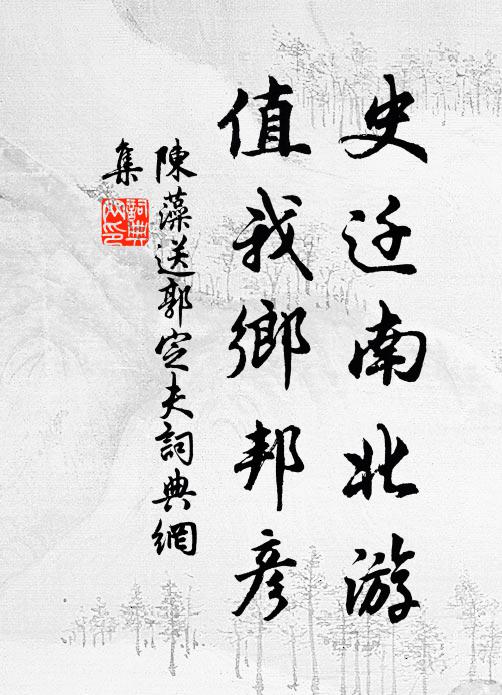 史迁南北游
值我鄉邦彦
陳藻送郭定夫詞典網
集
詞典